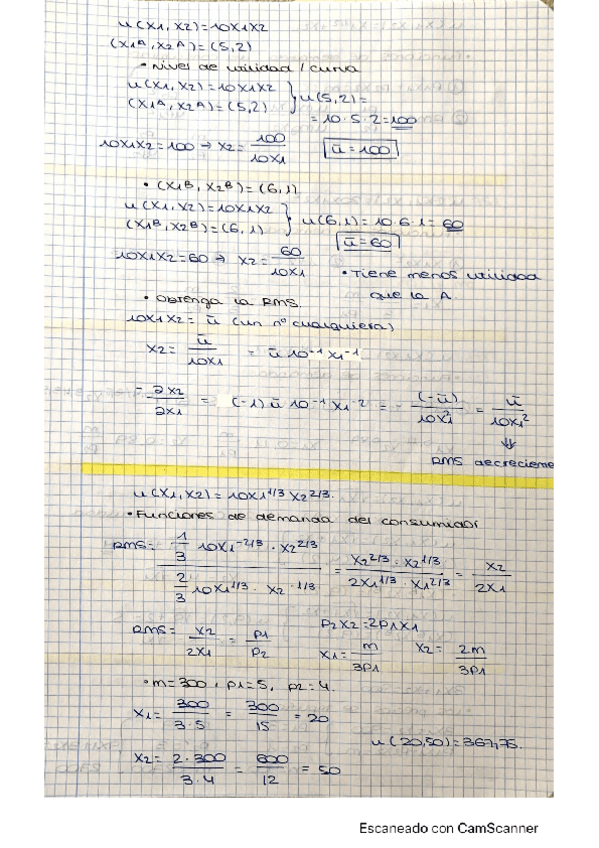 u(x1, x2)=10x1x2
(x1A, x2A)=(5,2)
• Nivel de utilidad / curva
u(x1, x2)=10x1x2
(x1A, x2A)=(5,2) } u(5,2)=
= 10·5·2=100
10x1x2=100 → x2= 100/10x1   ū=100
• (x1B, x2B)=(6,1)
u(x1, x2)=10x1x2
(x1B, x2B)=(6,1) } u(6,1)=10·6·1=60
ū=60
10x1x2=60 → x2= 60/10x1   • Tiene menos utilidad
que la A.
• Obtenga la RMS.
10x1x2= ū (un nº cualquiera)
x2= ū/10x1 = ū 10⁻¹ x1⁻¹
= ∂x2/∂x1 = (-1) ū 10⁻¹ x1⁻² = - (-ū)/10x1² = ū/10x1²
⇓
RMS decreciene
u(x1, x2)=10x1^1/3 x2^2/3.
• Funciones de demanda del consumidor
RMS= (1/3 10x1^-2/3 · x2^2/3)/(2/3 10x1^1/3 · x2^-1/3) = (x2^2/3 · x2^1/3)/(2x1^1/3 · x1^2/3) = x2/2x1
RMS= x2/2x1 = p1/p2   p2x2=2p1x1   x1= m/3p1   x2= 2m/3p1
• m=300, p1=5, p2=4.
x1= 300/3·5 = 300/15 = 20
u(20,50)=367,75.
x2= 2·300/3·4 = 600/12 = 50
Escaneado con CamScanner